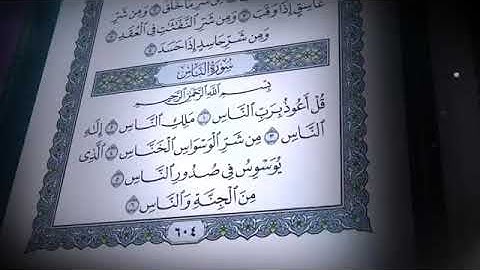 غَاسِقٍ إِذَا وَقَبَ ٣ وَمِن شَرِّ
وَمِن شَرِّ حَاسِدٍ إِذَا حَسَدَ ٥
سُورَةُ النَّاسِ
بِسْمِ اللَّهِ الرَّحْمَٰنِ الرَّحِيمِ
قُلْ أَعُوذُ بِرَبِّ النَّاسِ ١ مَلِكِ النَّاسِ ٢ إِلَٰهِ
النَّاسِ ٣ مِن شَرِّ الْوَسْوَاسِ الْخَنَّاسِ ٤ الَّذِي
يُوَسْوِسُ فِي صُدُورِ النَّاسِ ٥
مِنَ الْجِنَّةِ وَالنَّاسِ ٦
٦٠٤